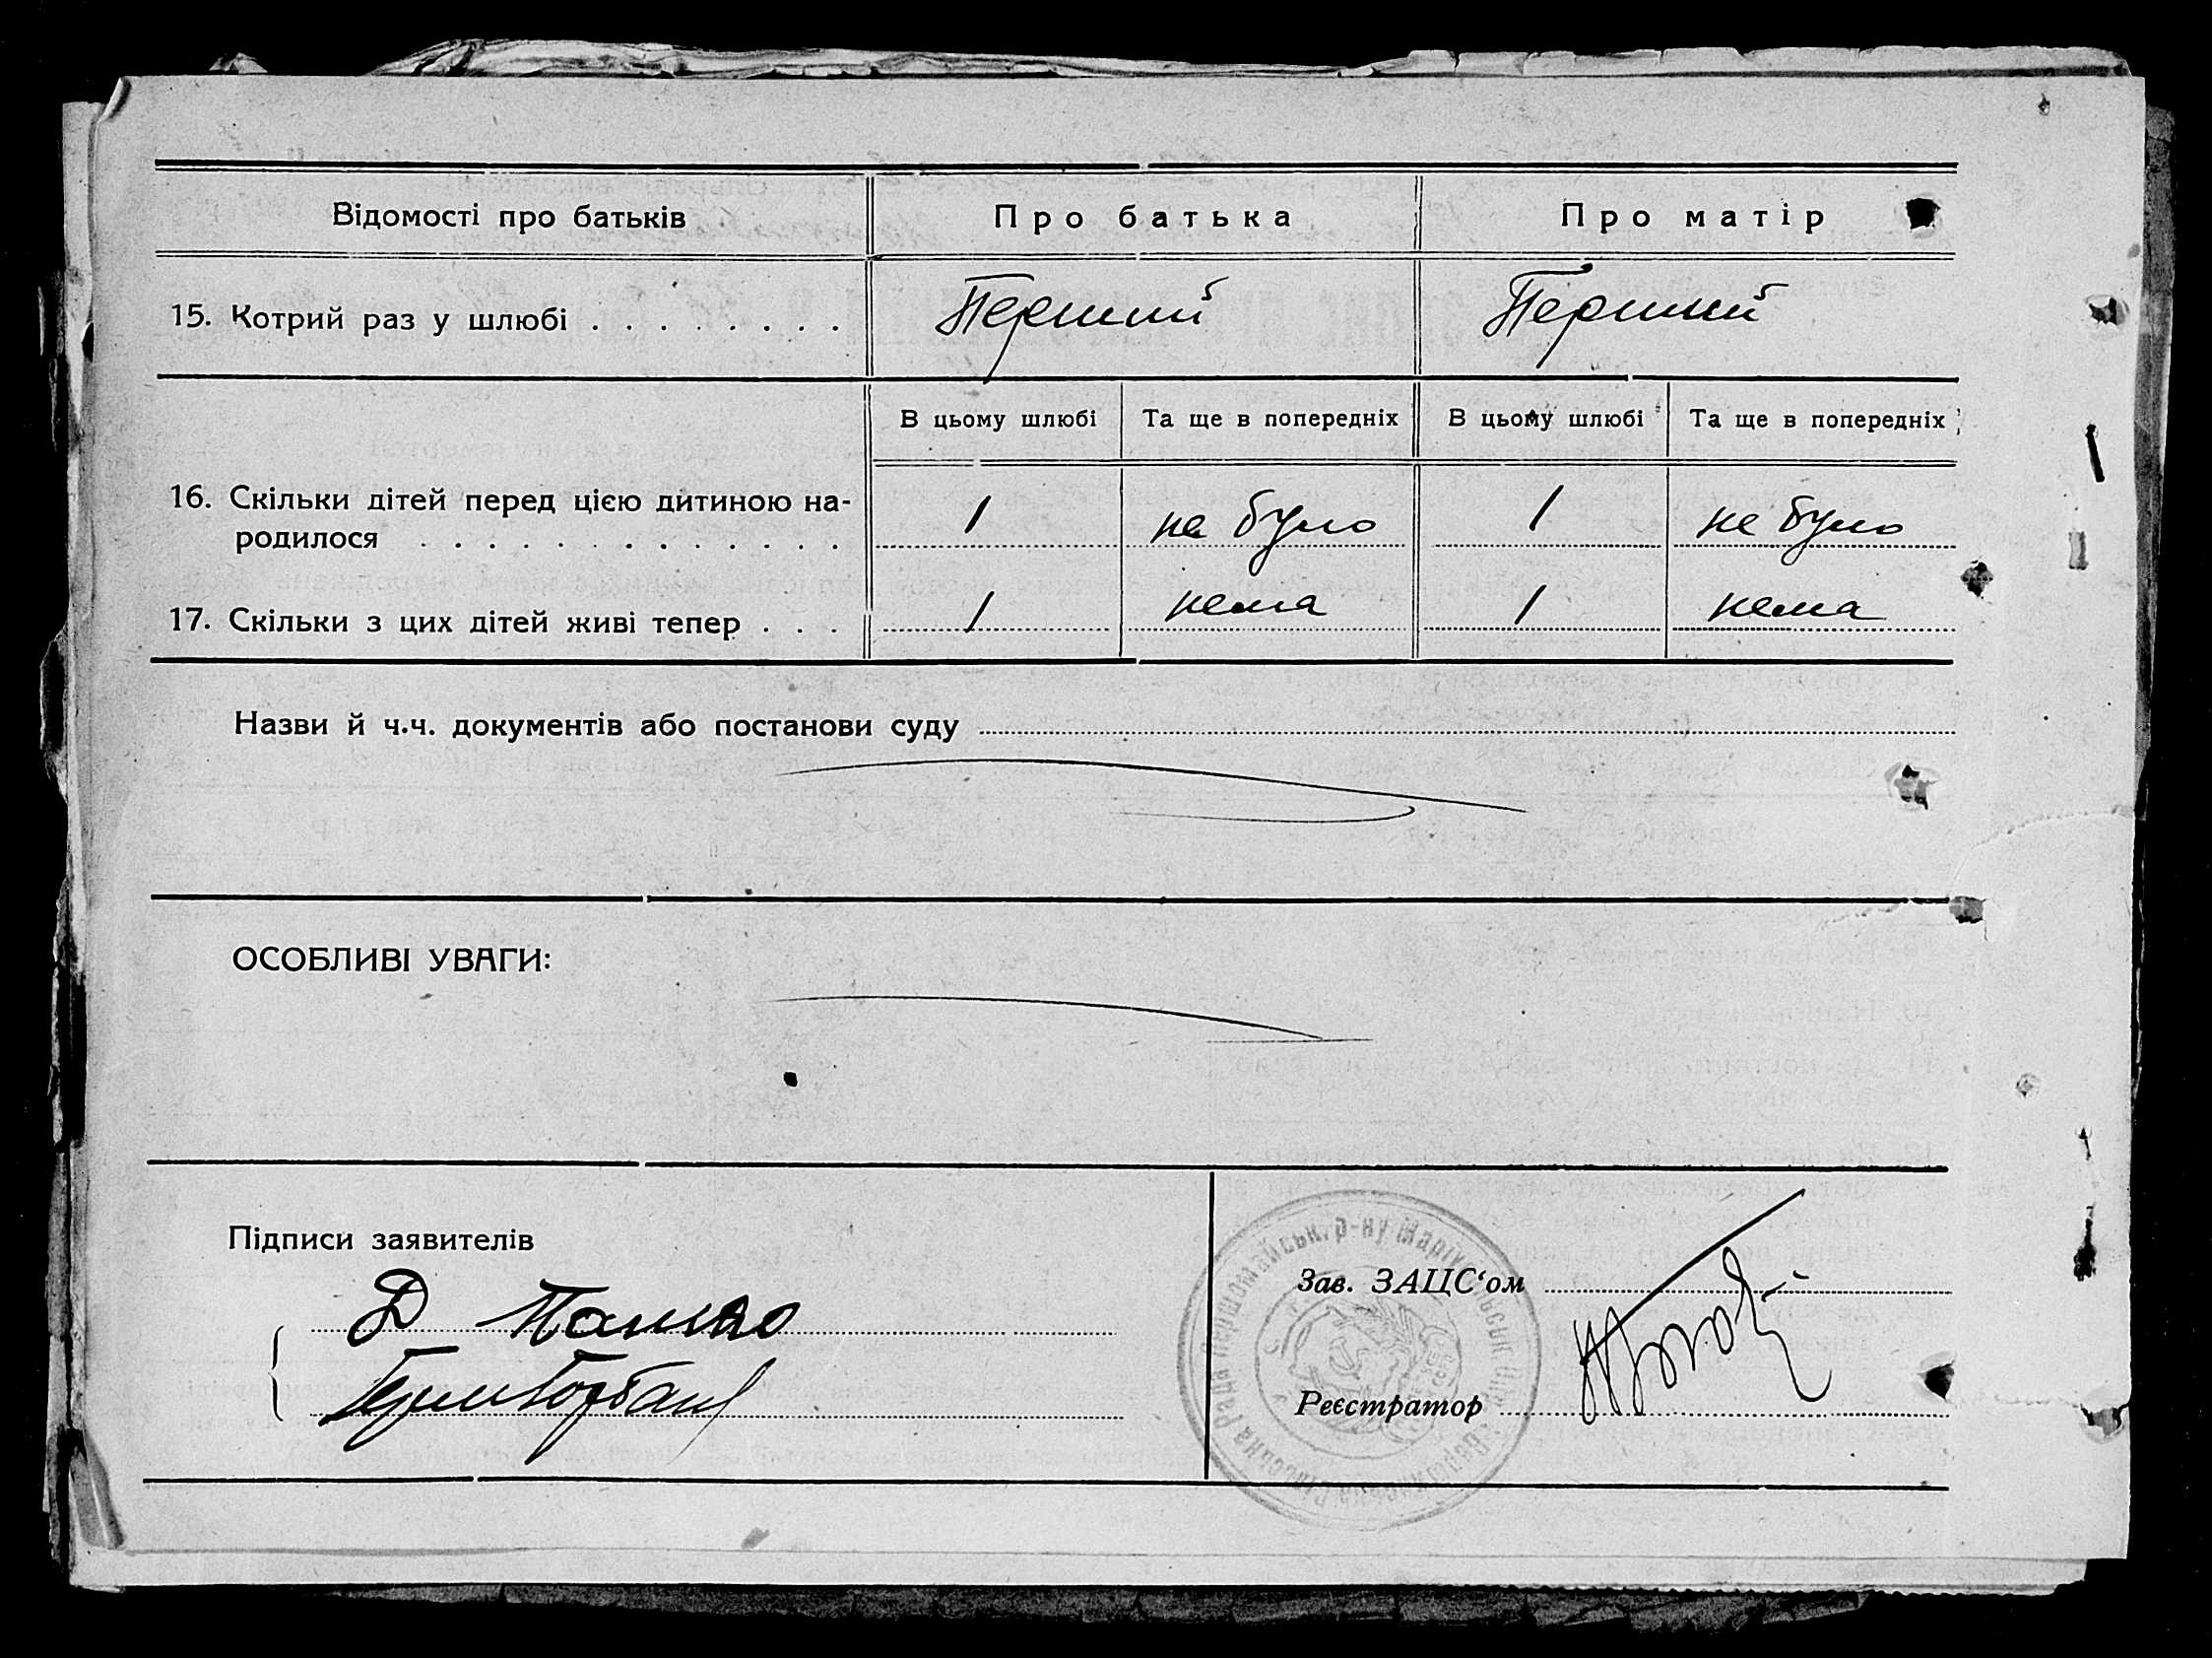 Відомості про батьків
Про батька
Про матір
15. Котрий раз у шлюбі . . . . . . . .
Перший
Перший
В цьому шлюбі
Та ще в попередніх
В цьому шлюбі
Та ще в попередніх
16. Скільки дітей перед цією дитиною на-
родилося . . . . . . . . . . . . .
1
не було
1
не було
17. Скільки з цих дітей живі тепер . . .
1
нема
1
нема
Назви й ч.ч. документів або постанови суду
ОСОБЛИВІ УВАГИ:
Підписи заявителів
Д
Зав. ЗАЦС‘ом
Реєстратор
Рада Першомайськ. р-ну